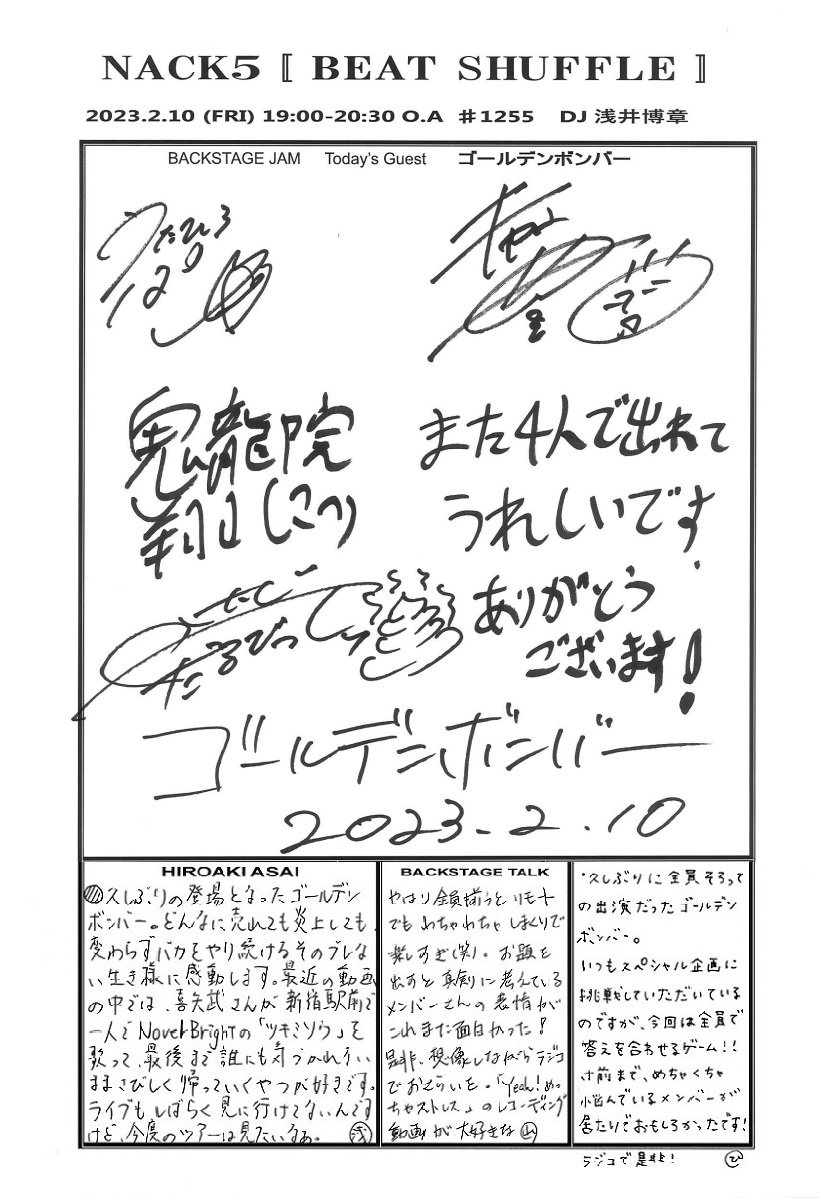 NACK5 〚 BEAT SHUFFLE 〛
2023.2.10 (FRI) 19:00-20:30 O.A ♯1255 DJ 浅井博章
BACKSTAGE JAM Today's Guest ゴールデンボンバー
うたひろ
鬼龍院
翔
また4人で出れて
うれしいです
ありがとう
ございます!
ゴールデンボンバー
2023.2.10
HIROAKI ASAI
久しぶりの登場となったゴールデン
ボンバー。どんなに売れても炎上しても、
変わらずバカをやり続けるそのブレな
い生き様に感動します。最近の動画
の中では、喜矢武さんが新宿駅前で
一人でNovelBrightの「ツキミソウ」を
歌って、最後まで誰にも気づかれない
ままさびしく帰っていくやつが好きです。
ライブもしばらく見に行けてないんです
けど、今度のツアーは見たいなぁ。 浅
BACKSTAGE TALK
やはり全員揃うとリモート
でもわちゃわちゃしまくりで
楽しすぎ(笑)。お題を
出すと真剣に考えている
メンバーさんの表情が
これまた面白かった!
是非、想像しながらラジコ
でおさらいを。「Yeah!めっ
ちゃストレス」のレコーディング
動画が大好きな 山
・久しぶりに全員そろって
の出演だったゴールデン
ボンバー。
いつもスペシャル企画に
挑戦していただいている
のですが、今回は全員で
答えを合わせるゲーム!!
寸前まで、めちゃくちゃ
悩んでいるメンバーが
居たりでおもしろかったです!
ラジコで是非! ひ